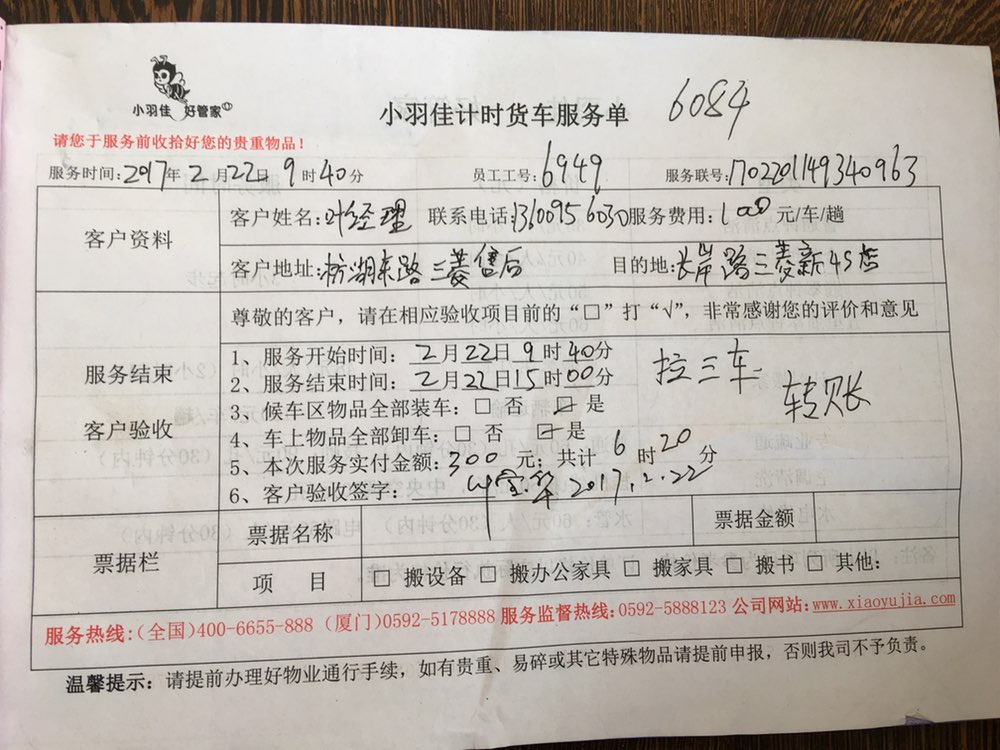 小羽佳 好管家
小羽佳计时货车服务单 6084
请您于服务前收拾好您的贵重物品！
服务时间：2017年2月22日9时40分 员工工号：6949 服务联号：170220114934 0963
客户资料
客户姓名：叶经理 联系电话：13600956030 服务费用：100元/车/趟
客户地址：枋湖东路三菱售后 目的地：长岸路三菱新4S店
尊敬的客户，请在相应验收项目前的“□”打“√”，非常感谢您的评价和意见
服务结束
客户验收
1、服务开始时间：2月22日9时40分
2、服务结束时间：2月22日15时00分
3、候车区物品全部装车：□ 否 ☑ 是
4、车上物品全部卸车：□ 否 ☑ 是
5、本次服务实付金额：300元；共计6时20分
6、客户验收签字： 2017.2.22
拉三车
转账
票据栏
票据名称 票据金额
项 目 □ 搬设备 □ 搬办公家具 □ 搬家具 □ 搬书 □ 其他：
服务热线：(全国)400-6655-888 (厦门)0592-5178888 服务监督热线：0592-5888123 公司网站：www.xiaoyujia.com
温馨提示：请提前办理好物业通行手续，如有贵重、易碎或其它特殊物品请提前申报，否则我司不予负责。